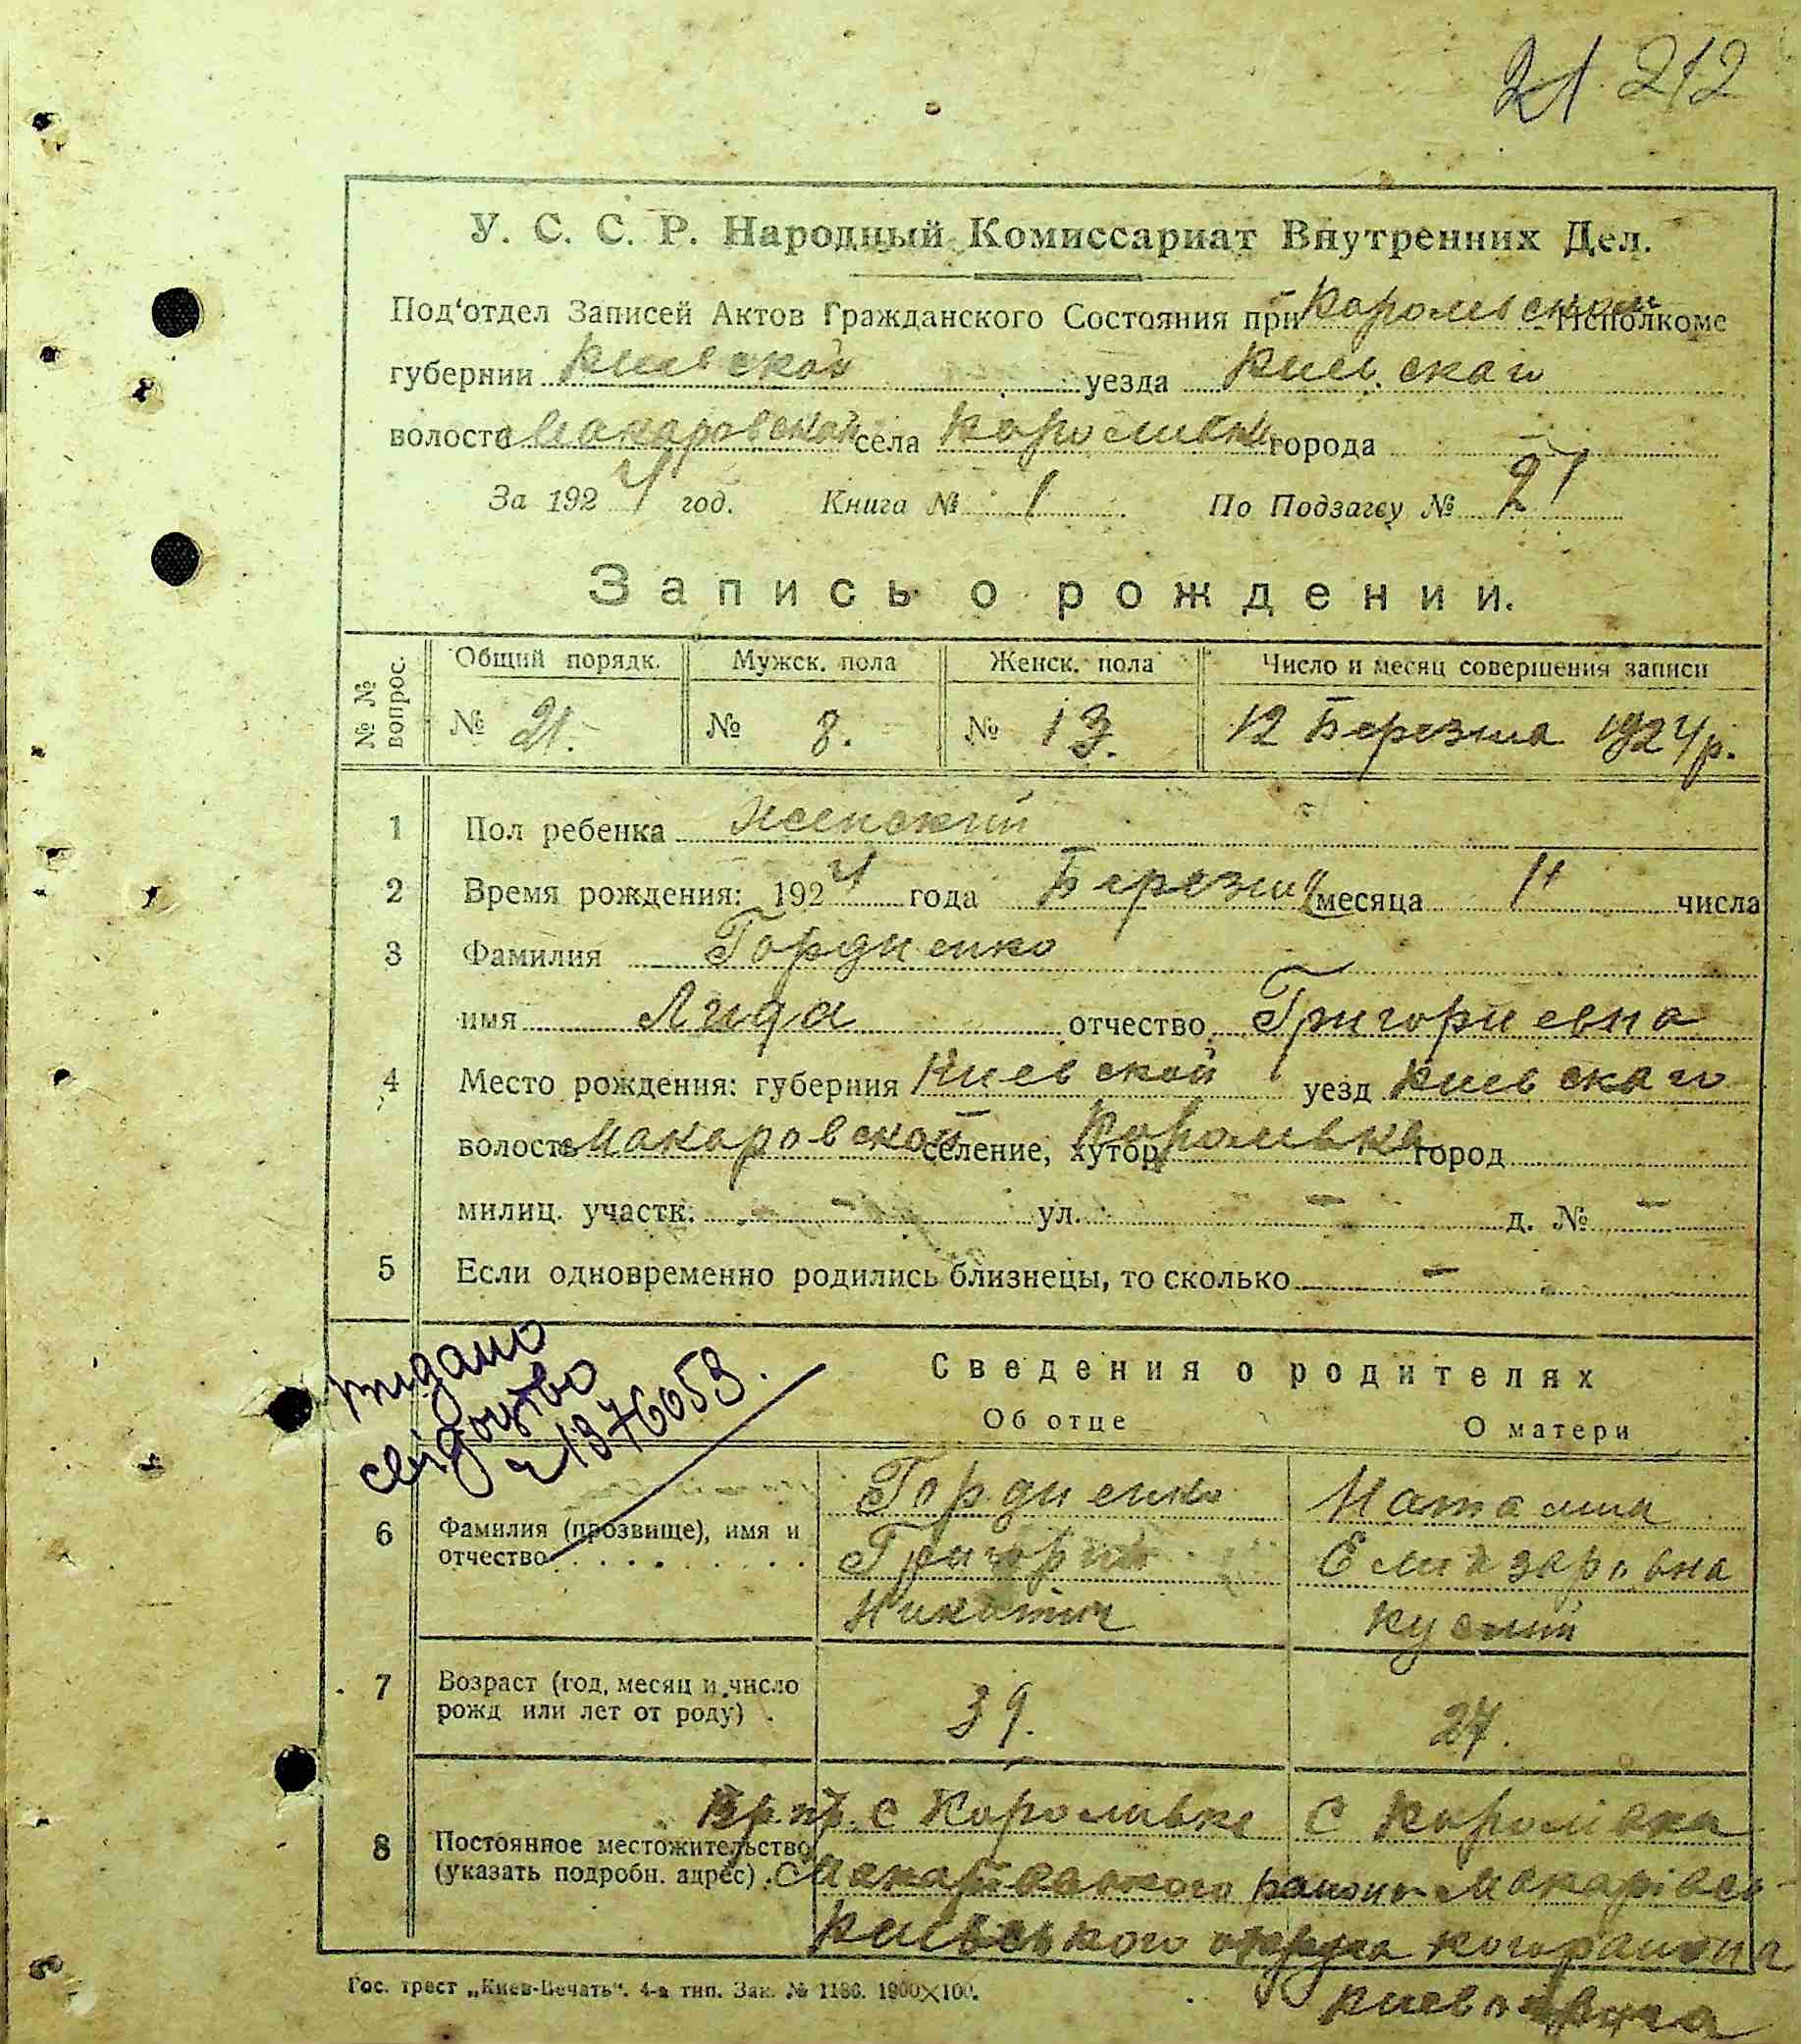 21 212
У. С. С. Р. Народный Комиссариат Внутренних Дел.
Под‘отдел Записей Актов Гражданского Состояния при Королевском Исполкоме
губернии Киевской уезда Киев.скаго
волости Макаровской села Короливки города —
За 1924 год. Книга № 1 По Подзагсу № 21
Запись о рождении.
№ № вопрос. Общий порядк. Мужск. пола Женск. пола Число и месяц совершения записи
№ 21. № 8. № 13. 12 Березня 1924 р.
1 Пол ребенка женский
2 Время рождения: 1924 года Березня месяца 11 числа
3 Фамилия Гордиенко
имя Лида отчество Григориевна
4 Место рождения: губерния Киевской уезд Киевскаго
волость Макаровской селение, хутор Короливка город
милиц. участк. — — ул. — д. № —
5 Если одновременно родились близнецы, то сколько —
видано
свідоцтво
1376053.
Сведения о родителях
Об отце О матери
6 Фамилия (прозвище), имя и отчество
Гордиенко Наталия
Григорий Елиазаровна
Никитич
7 Возраст (год, месяц и число рожд или лет от роду) .
39. 27.
8 Постоянное местожительство (указать подробн. адрес) .
с Короливке С Королівка
района Макарівсь-
Київського округа когорайона
Гос. трест „Киев-Печать“. 4-я тип. Зак. № 1186. 1900×100.